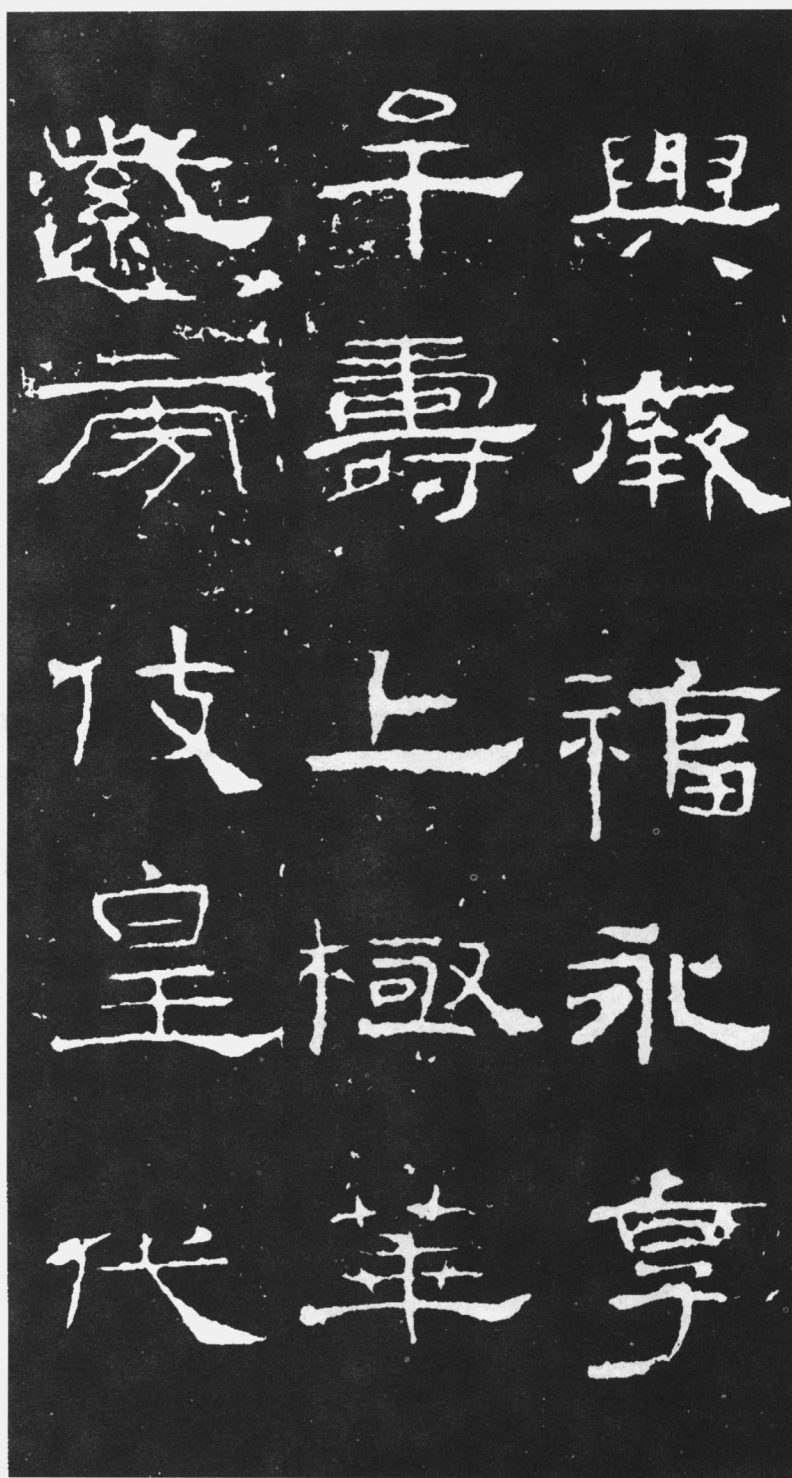 興厥福永享
牟壽上極華
紫旁伎皇代